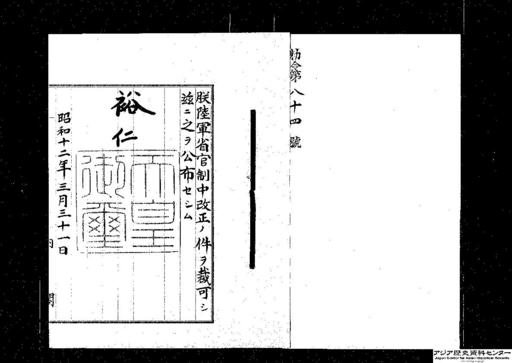 勅令第八十四號
朕陸軍省官制中改正ノ件ヲ裁可シ
玆ニ之ヲ公布セシム
裕仁
天皇御璽
昭和十二年三月三十一日
内閣
アジア歴史資料センター
Japan Center for Asian Historical Records